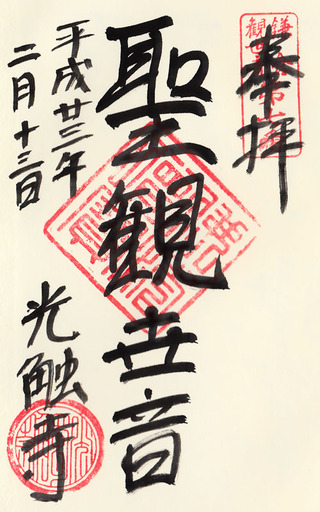 奉拝
聖観世音
平成廿三年
二月十三日
光触寺